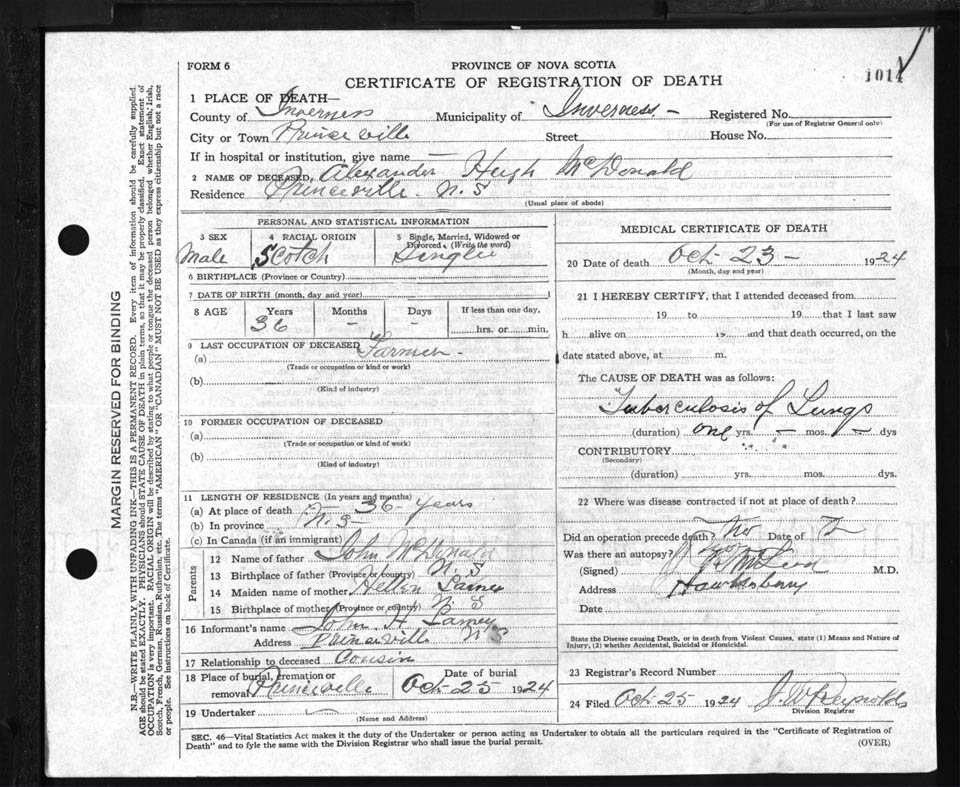 FORM 6
PROVINCE OF NOVA SCOTIA
CERTIFICATE OF REGISTRATION OF DEATH
1014
1 PLACE OF DEATH—
County of Inverness Municipality of Inverness - Registered No.
(For use of Registrar General only)
City or Town Princeville Street House No.
If in hospital or institution, give name —
2 NAME OF DECEASED, Alexander Hugh McDonald
Residence Princeville N. S
(Usual place of abode)
PERSONAL AND STATISTICAL INFORMATION
3 SEX 4 RACIAL ORIGIN 5 Single, Married, Widowed or Divorced (Write the word)
Male Scotch Single
6 BIRTHPLACE (Province or Country)
7 DATE OF BIRTH (month, day and year)
8 AGE Years Months Days If less than one day,
36 - - hrs. or min.
9 LAST OCCUPATION OF DECEASED
(a) Farmer -
(Trade or occupation or kind or work)
(b)
(Kind of industry)
10 FORMER OCCUPATION OF DECEASED
(a)
(Trade or occupation or kind or work)
(b)
(Kind of industry)
11 LENGTH OF RESIDENCE (In years and months)
(a) At place of death 36 - years
(b) In province N. S -
(c) In Canada (if an immigrant)
Parents
12 Name of father John McDonald
13 Birthplace of father (Province or country) N. S
14 Maiden name of mother Hellen Lamey
15 Birthplace of mother (Province or country) N. S
16 Informant's name John H. Lamey
Address Princeville N S
17 Relationship to deceased Cousin
18 Place of burial, cremation or removal Princeville Date of burial Oct. 25 1924
19 Undertaker
(Name and Address)
MEDICAL CERTIFICATE OF DEATH
20 Date of death Oct - 23 - 1924
(Month, day and year)
21 I HEREBY CERTIFY, that I attended deceased from
19 to 19 that I last saw
h alive on 19 and that death occurred, on the
date stated above, at m.
The CAUSE OF DEATH was as follows:
Tuberculosis of Lungs
(duration) one yrs. - mos. - dys
CONTRIBUTORY
(Secondary)
(duration) yrs. mos. dys.
22 Where was disease contracted if not at place of death?
Did an operation precede death? No Date of
Was there an autopsy?
(Signed) P. McLeod M.D.
Address Hawkesbury
Date
State the Disease causing Death, or in death from Violent Causes, state (1) Means and Nature of
Injury, (2) whether Accidental, Suicidal or Homicidal.
23 Registrar's Record Number
24 Filed Oct. 25 1924 J. W Reynolds
Division Registrar
SEC. 46—Vital Statistics Act makes it the duty of the Undertaker or person acting as Undertaker to obtain all the particulars required in the "Certificate of Registration of
Death" and to fyle the same with the Division Registrar who shall issue the burial permit.
(OVER)
MARGIN RESERVED FOR BINDING
N.B.—WRITE PLAINLY WITH UNFADING INK—THIS IS A PERMANENT RECORD. Every item of information should be carefully supplied.
AGE should be stated EXACTLY. PHYSICIANS should STATE CAUSE OF DEATH in plain terms, so that it may be properly classified. Exact statement of
OCCUPATION is very important. RACIAL ORIGIN will be described by stating to what people or tongue the deceased person belonged whether English, Irish,
Scotch, French, German, Russian, Ruthenian, etc. The terms "AMERICAN" OR "CANADIAN" MUST NOT BE USED as they express citizenship but not a race
or people. See instructions on back of Certificate.